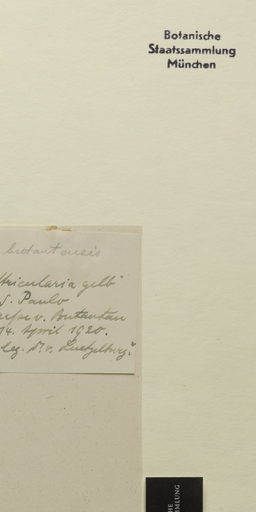 Botanische
Staatssammlung
München
butantensis
tricularia gelb"
S. Paulo
v. Butantan
14. April 1920.
leg. Dr. v. Luetzelburg."
MMLUNG